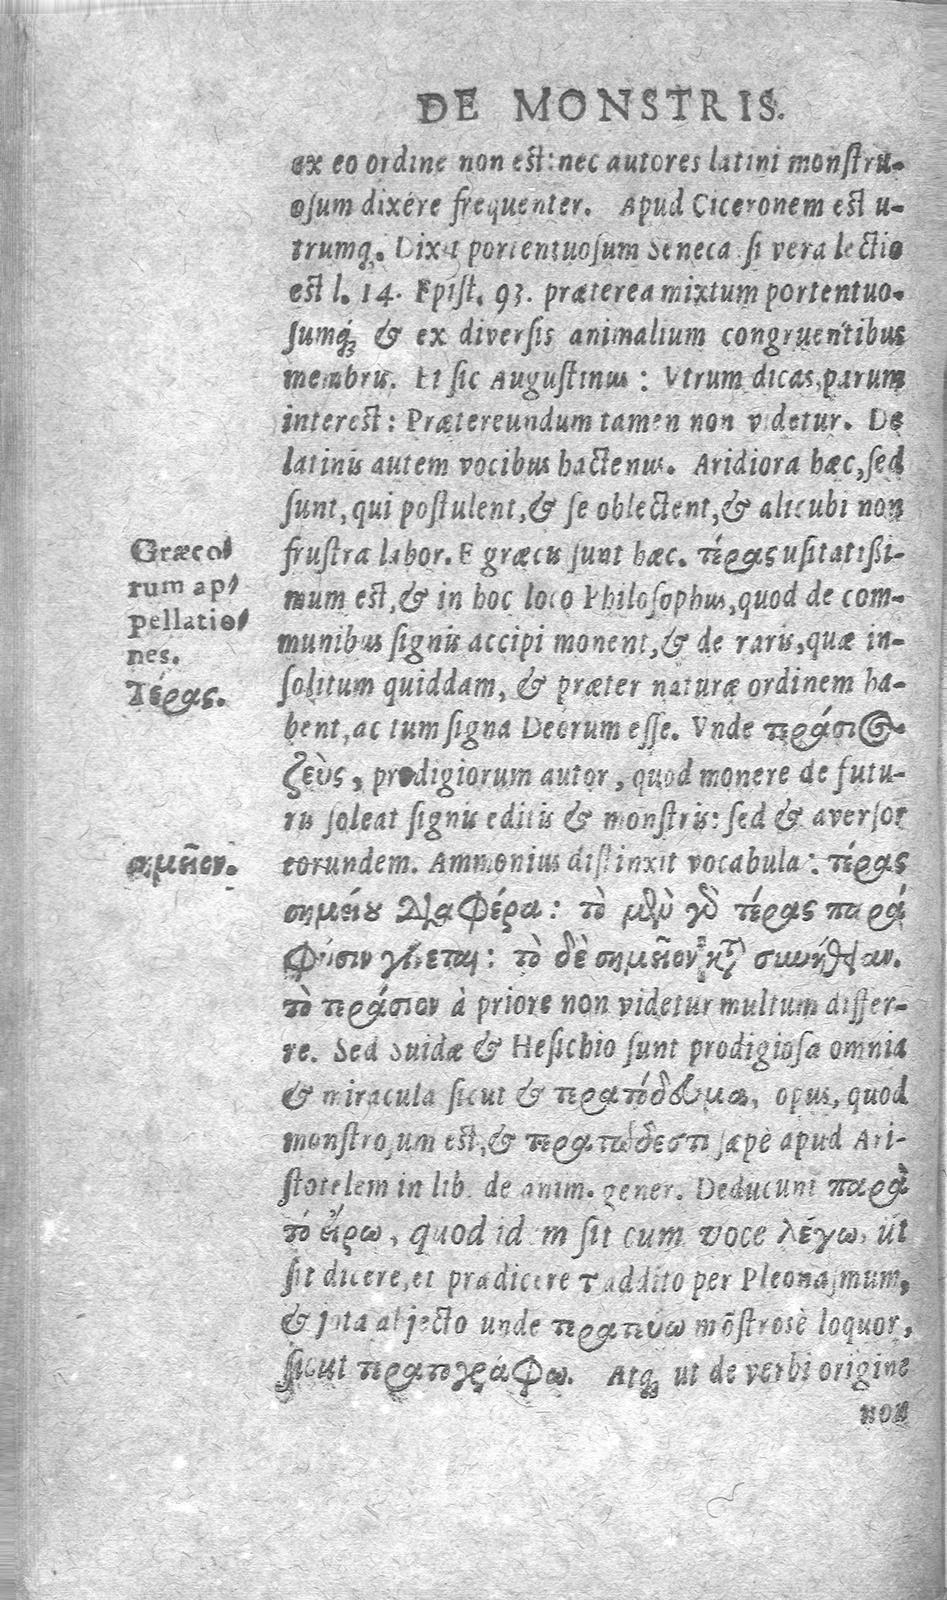 DE MONSTRIS.
ex eo ordine non est: nec autores latini monstru-
osum dixêre frequenter. Apud Ciceronem est u-
trumq́. Dixit portentuosum Seneca si vera lectio
est l. 14. Epist. 93. præterea mixtum portentuo-
sumq́; & ex diversis animalium congruentibus
membris. Et sic Augustinus: Vtrum dicas, parum
interest: Prætereundum tamen non videtur. De
latinis autem vocibus hactenus. Aridiora hæc, sed
sunt, qui postulent, & se oblectent, & alicubi non
Græco-
rum ap-
pellatio-
nes.
Τέρας.
frustra labor. E græcis sunt hæc. τέρας usitatißi-
mum est, & in hoc loco Philosophus, quod de com-
munibus signis accipi monent, & de raris, quæ in-
solitum quiddam, & præter naturæ ordinem ha-
bent, ac tum signa Deorum esse. Vnde τεράστιος
ζεὺς, prodigiorum autor, quod monere de futu-
ris soleat signis editis & monstris: sed & aversor
σημεῖον.
eorundem. Ammonius distinxit vocabula: τέρας
σημείου διαφέρει: τὸ μὲν γὸ τέρας παρά
φύσιν γίνεται: τὸ δὲ σημεῖον κτ συνήθειαν.
τὸ τεράστιον à priore non videtur multum differ-
re. Sed Suidæ & Hesichio sunt prodigiosa omnia
& miracula sicut & opus, quod
monstrosum est, & sæpè apud Ari-
stotelem in lib. de anim. gener. Deducunt παρὰ
τό εἴρω, quod idem sit cum voce λέγω, ut
sit dicere, et prædicere τ addito per Pleonasmum,
& jota abjecto unde mōstrosè loquor,
sicut τερατογράφω. Atq́; ut de verbi origine
non